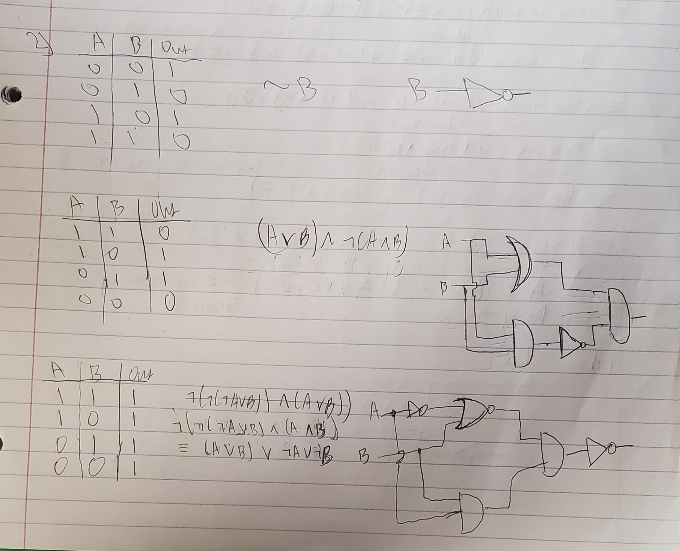 2)
A B Out
0 0 1
0 1 0
1 0 1
1 1 0
~B
B
A B Out
1 1 0
1 0 1
0 1 1
0 0 0
(A∨B)∧¬(A∧B)
A
B
A B Out
1 1 1
1 0 1
0 1 1
0 0 1
¬(¬(¬A∨B)) ∧(A∨B))
¬(¬(¬A∨B) ∧ (A∧B))
≡ (A∨B) ∨ ¬A∨¬B
A
B